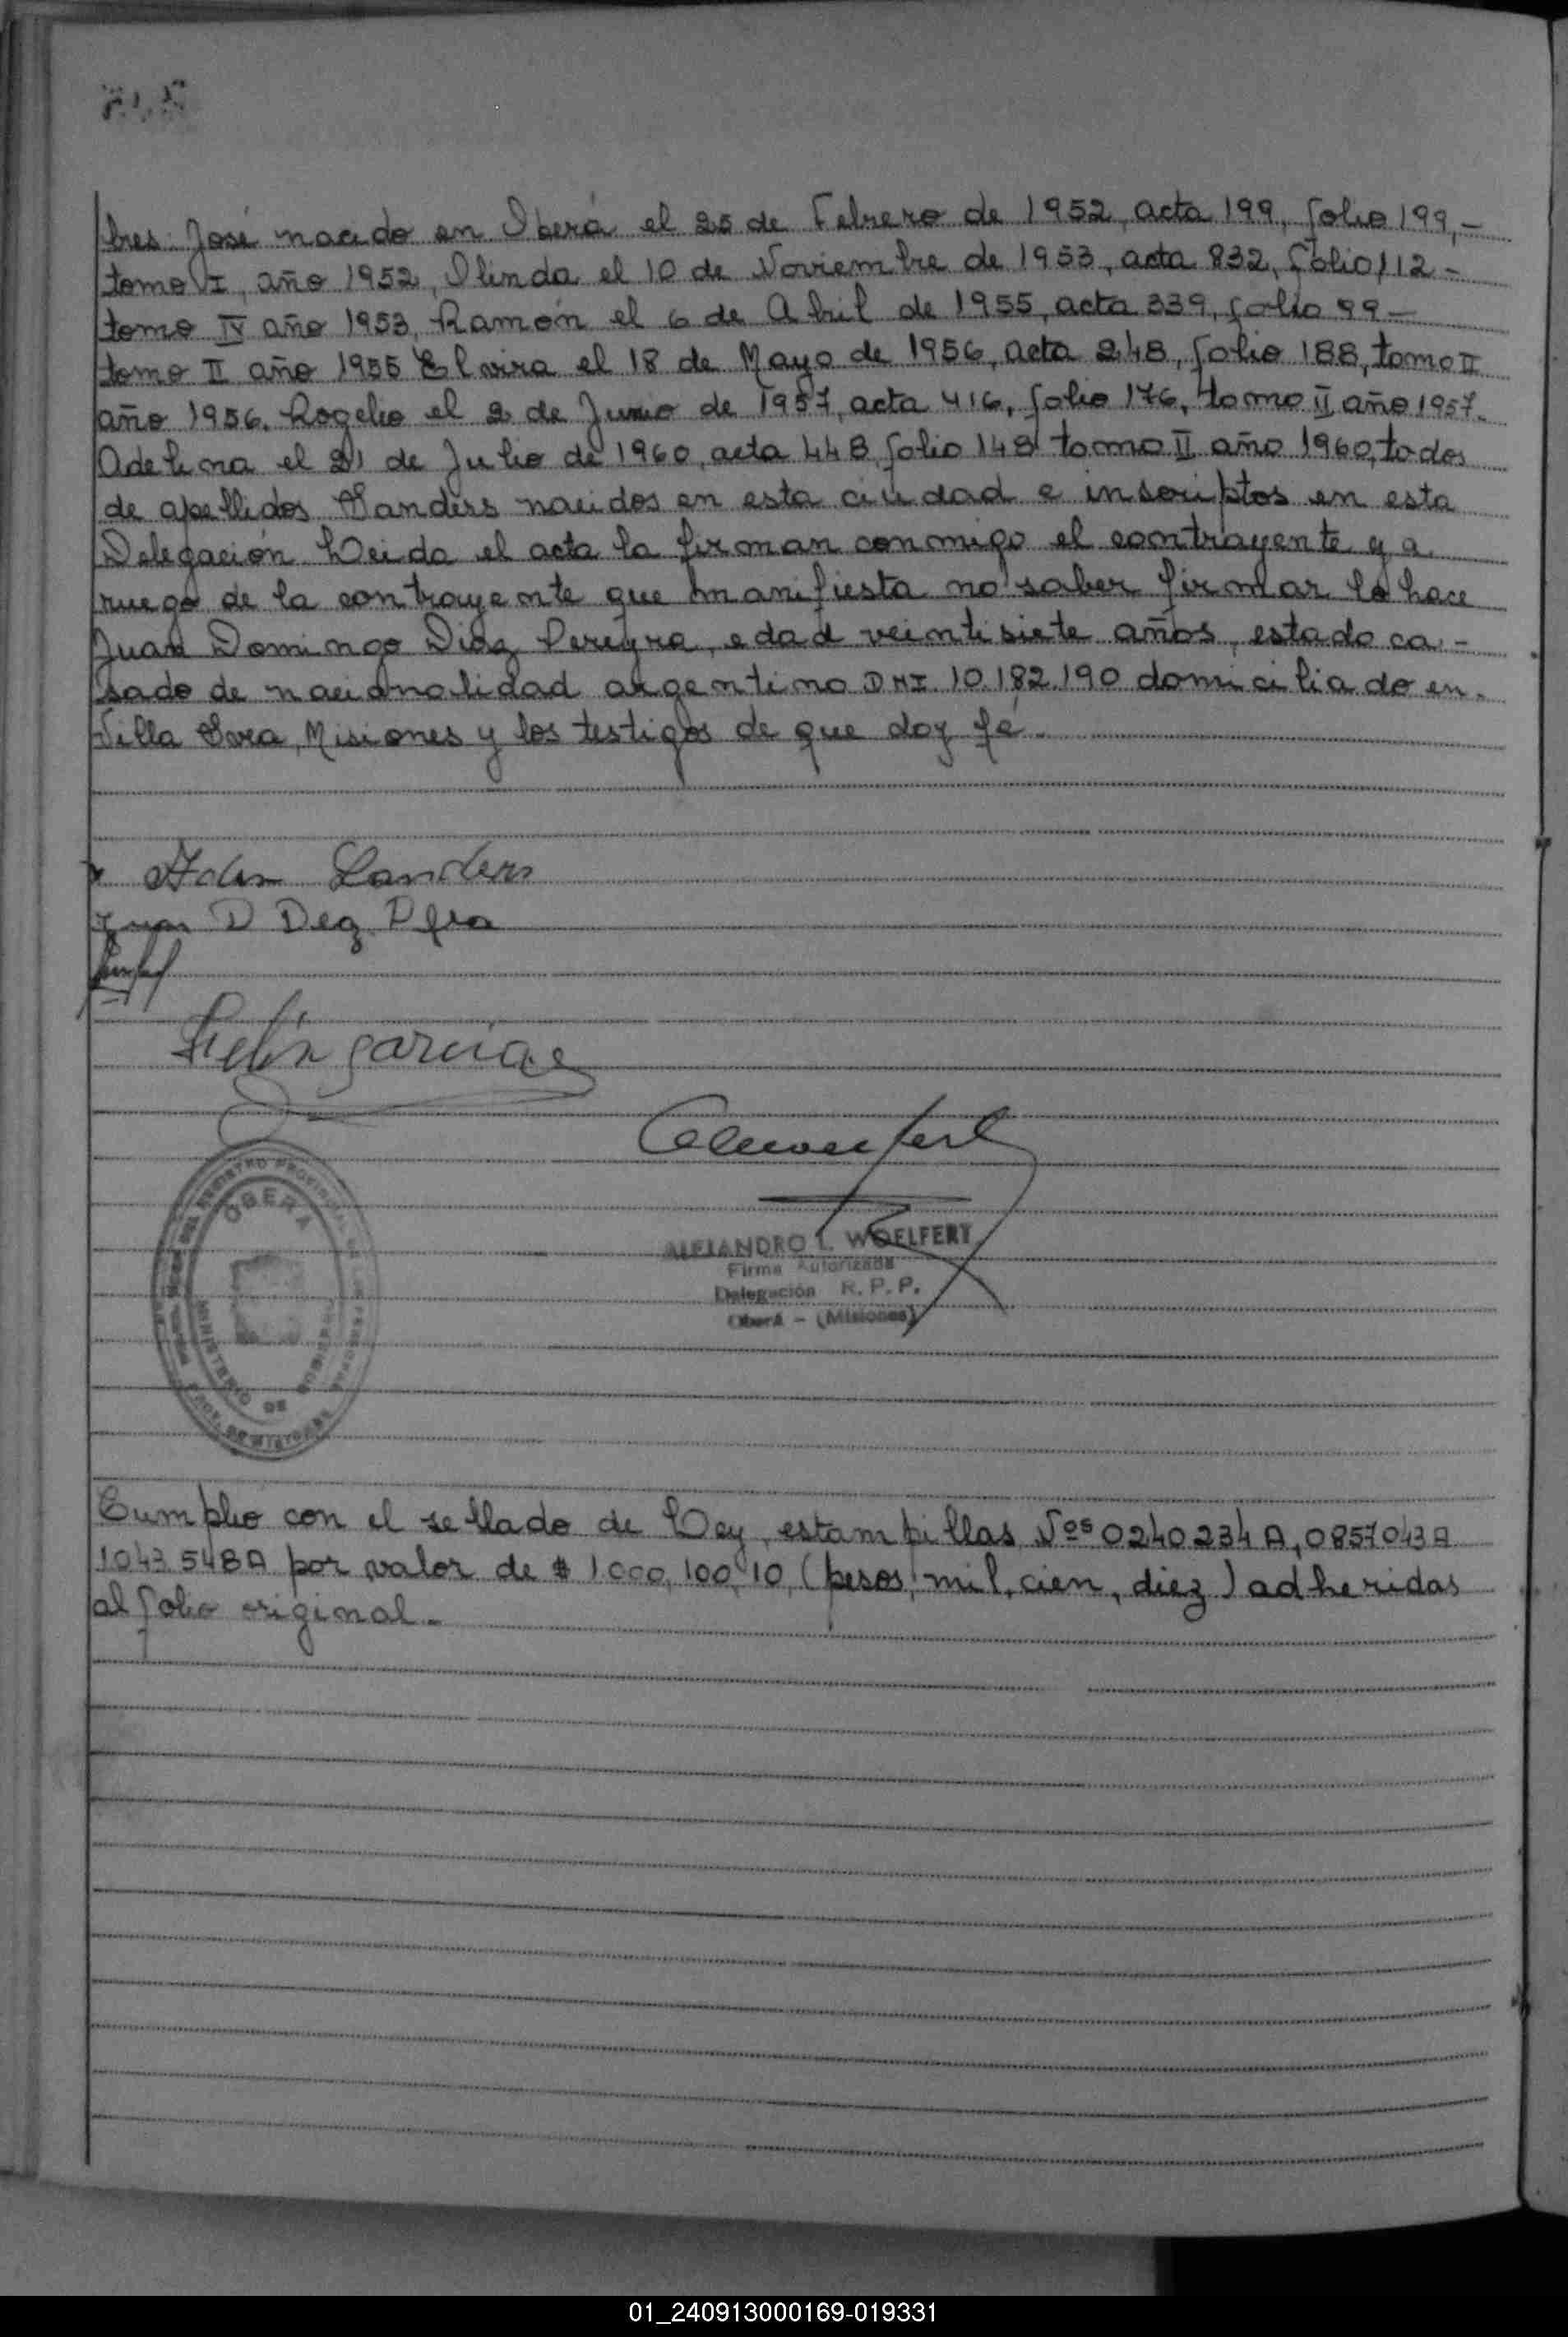 bres: José nacido en Oberá el 25 de Febrero de 1952, acta 199, folio 199,-
tomo I, año 1952, Olinda el 10 de Noviembre de 1953, acta 832, folio 112-
tomo IV año 1953, Ramón el 6 de Abril de 1955, acta 339, folio 99-
tomo II año 1955 Elvira el 18 de Mayo de 1956, acta 248, folio 188, tomo II
año 1956. Rogelio el 2 de Junio de 1957, acta 416, folio 176, tomo II año 1957.
Adelina el 21 de Julio de 1960, acta 448 folio 148 tomo II año 1960, todos
de apellidos Sanders nacidos en esta ciudad e inscriptos en esta
Delegación Leida el acta la firman conmigo el contrayente y a
ruego de la contrayente que manifiesta no saber firmar lo hace
Juan Domingo Diaz Pereyra, edad veintisiete años, estado ca-
sado de nacionalidad argentino DNI 10.182.190 domiciliado en
Villa Svea, Misiones y los testigos de que doy fé.
Sanders
Juan D Dez Pfra
Felix garcia
OBERA
MINISTERIO DE GOBIERNO
ALEJANDRO L. WOELFERT
Firma Autorizada
Delegación R. P. P.
Oberá - (Misiones)
Cumplio con el sellado de Ley, estampillas Nos 0240234A, 0857043A
1043548A por valor de $ 1000, 100, 10, (pesos, mil, cien, diez) adheridas
al folio original.-
01_240913000169-019331